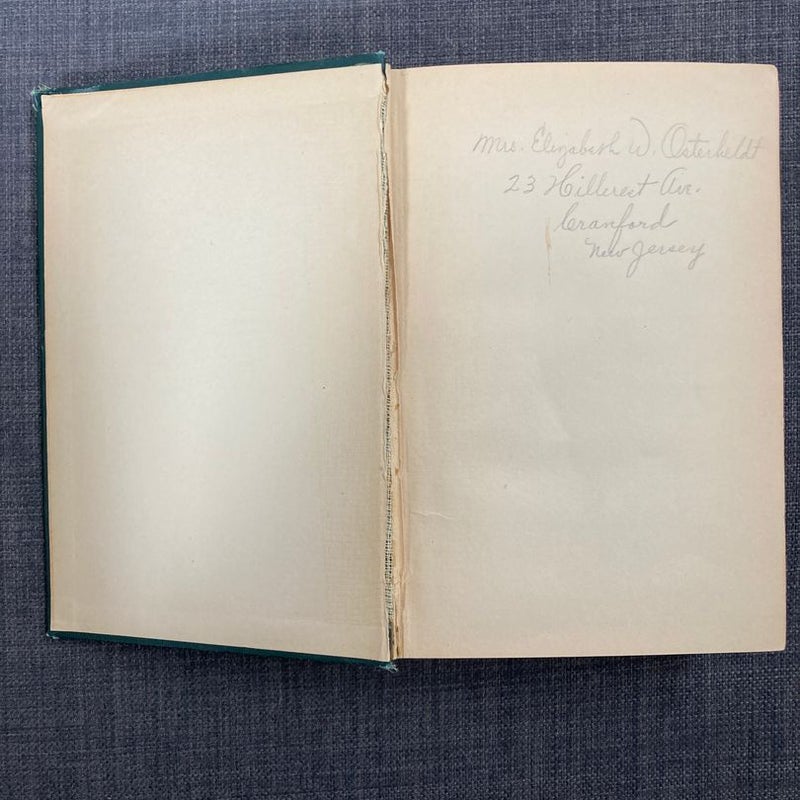 Mrs. Elizabeth W. Osterheldt
23 Hillcrest Ave.
Cranford
New Jersey